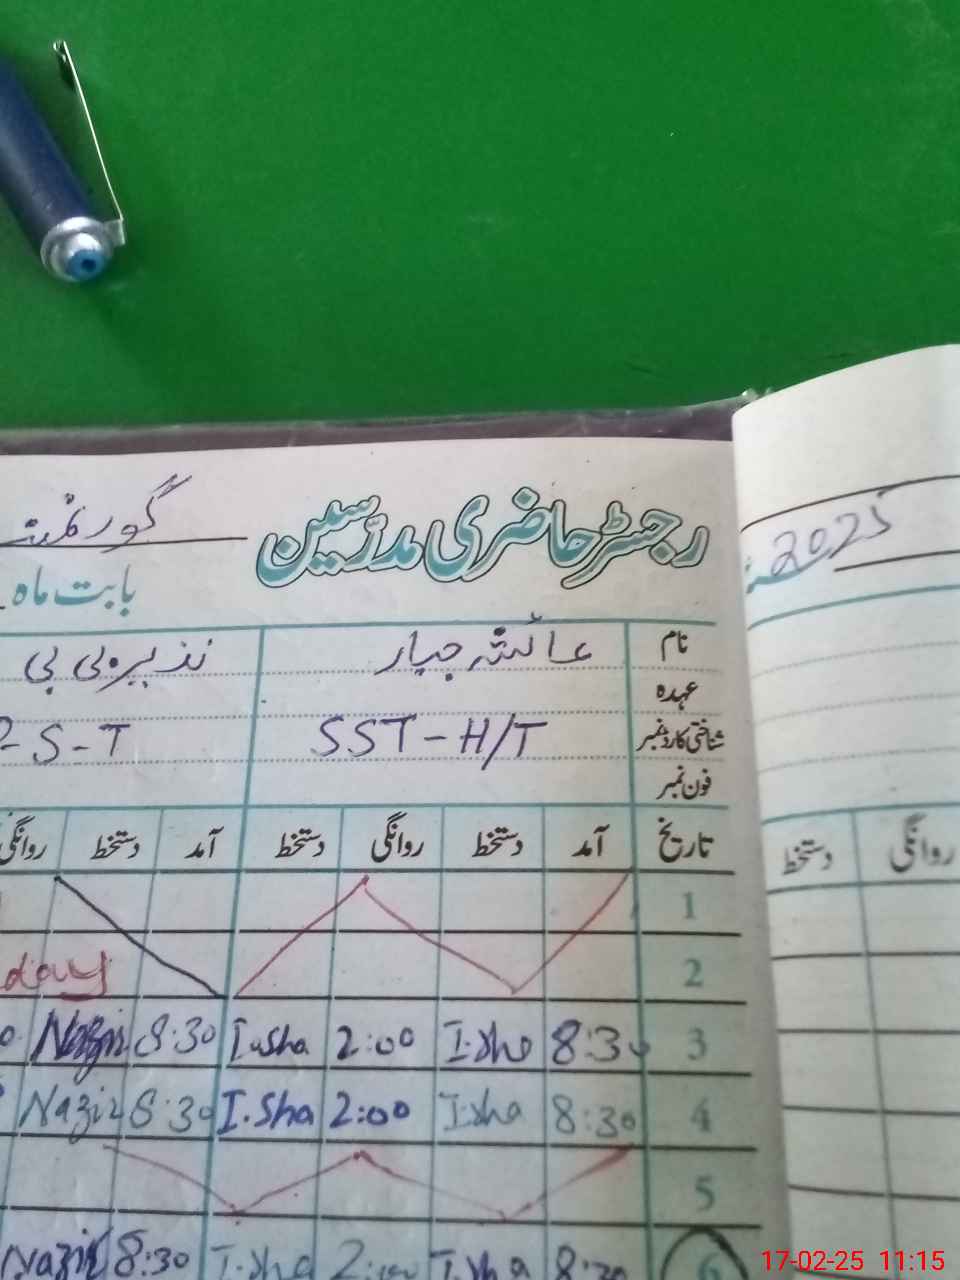 رجسٹر حاضری مدرسین گورنمنٹ
2025
بابت ماہ
نام عائشہ جبار نذیر بی بی
عہدہ
شناختی کارڈ نمبر SST-H/T -S-T
فون نمبر
تاریخ آمد دستخط روانگی دستخط آمد دستخط روانگی
روانگی دستخط
1
2 day
3 8:30 I.sha 2:00 I.sha 8:30 Nazir
4 8:30 I.sha 2:00 I.Sha 8:30 Nazir
5
6 8:30 I.sha 2:00 I.sha 8:30 Nazir
17-02-25 11:15